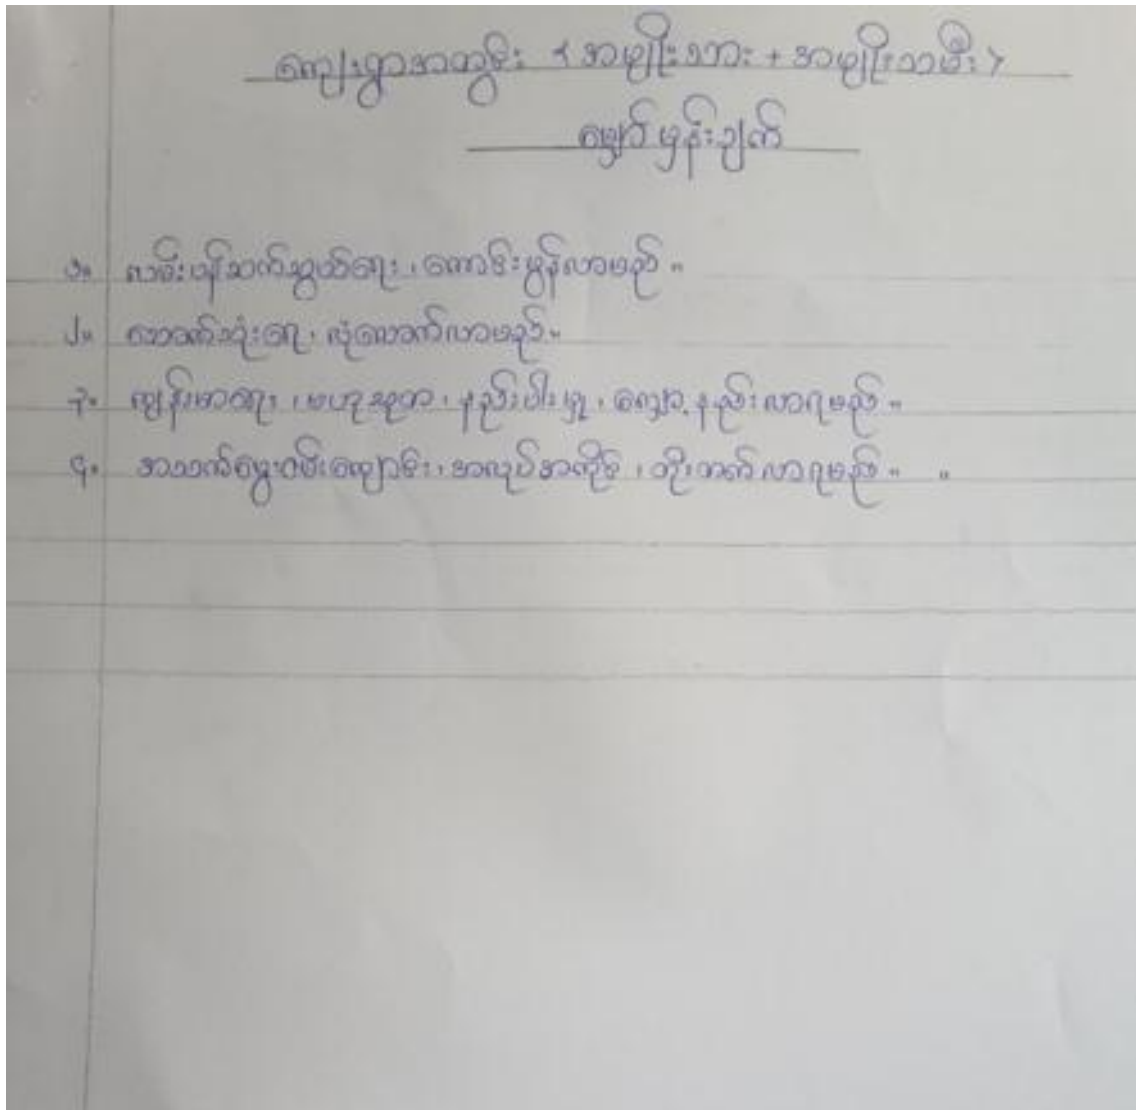 ကျေးရွာအတွင်း < အမျိုးသား + အမျိုးသမီး >
မျှော်မှန်းချက်
၁။ လမ်းပန်းဆက်သွယ်ရေး၊ ကောင်းမွန်လာမည်။
၂။ သောက်သုံးရေ၊ လုံလောက်လာမည်။
၃။ ကျန်းမာရေး၊ ဗဟုသုတ၊ နည်းပါးမှု၊ လျှော့နည်းလာရမည်။
၄။ အသက်မွေးဝမ်းကျောင်း၊ အလုပ်အကိုင်၊ တိုးတက်လာရမည်။ ။